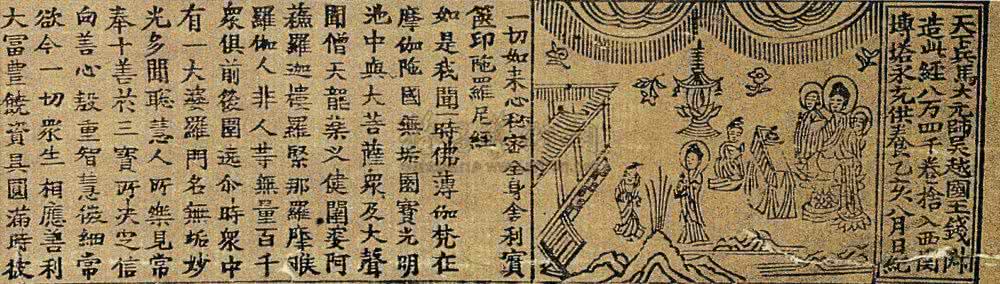 天下兵馬大元帥吳越國王錢俶
造此經八万四千卷捨入西関
塼塔永充供養乙亥八月日紀
一切如来心秘密全身舍利寶
篋印陁羅尼經
如是我聞一時佛薄伽梵在
摩伽陁國無垢園寶光明
池中與大菩薩衆及大聲
聞僧天龍藥叉健闥婆阿
蘓羅迦樓羅緊那羅摩睺
羅伽人非人等無量百千
衆俱前後圍遶尒時衆中
有一大婆羅門名無垢妙
光多聞聡慧人所樂見常
奉十善於三寶所决定信
向善心殷重智慧微細常
欲令一切衆生相應善利
大富豊饒資具圓滿時彼